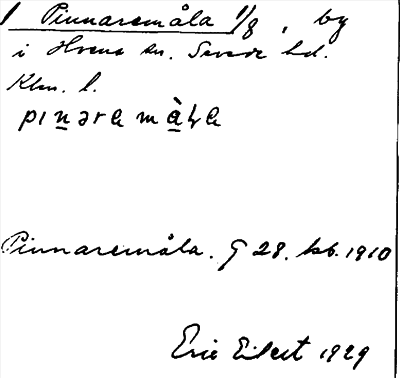 1 Pinnaremåla 1/8, by
i Hvena sn. Sevede hd.
Klm. l.
Pinnaremåla. G 28. kb. 1910
Eric Eilert 1929